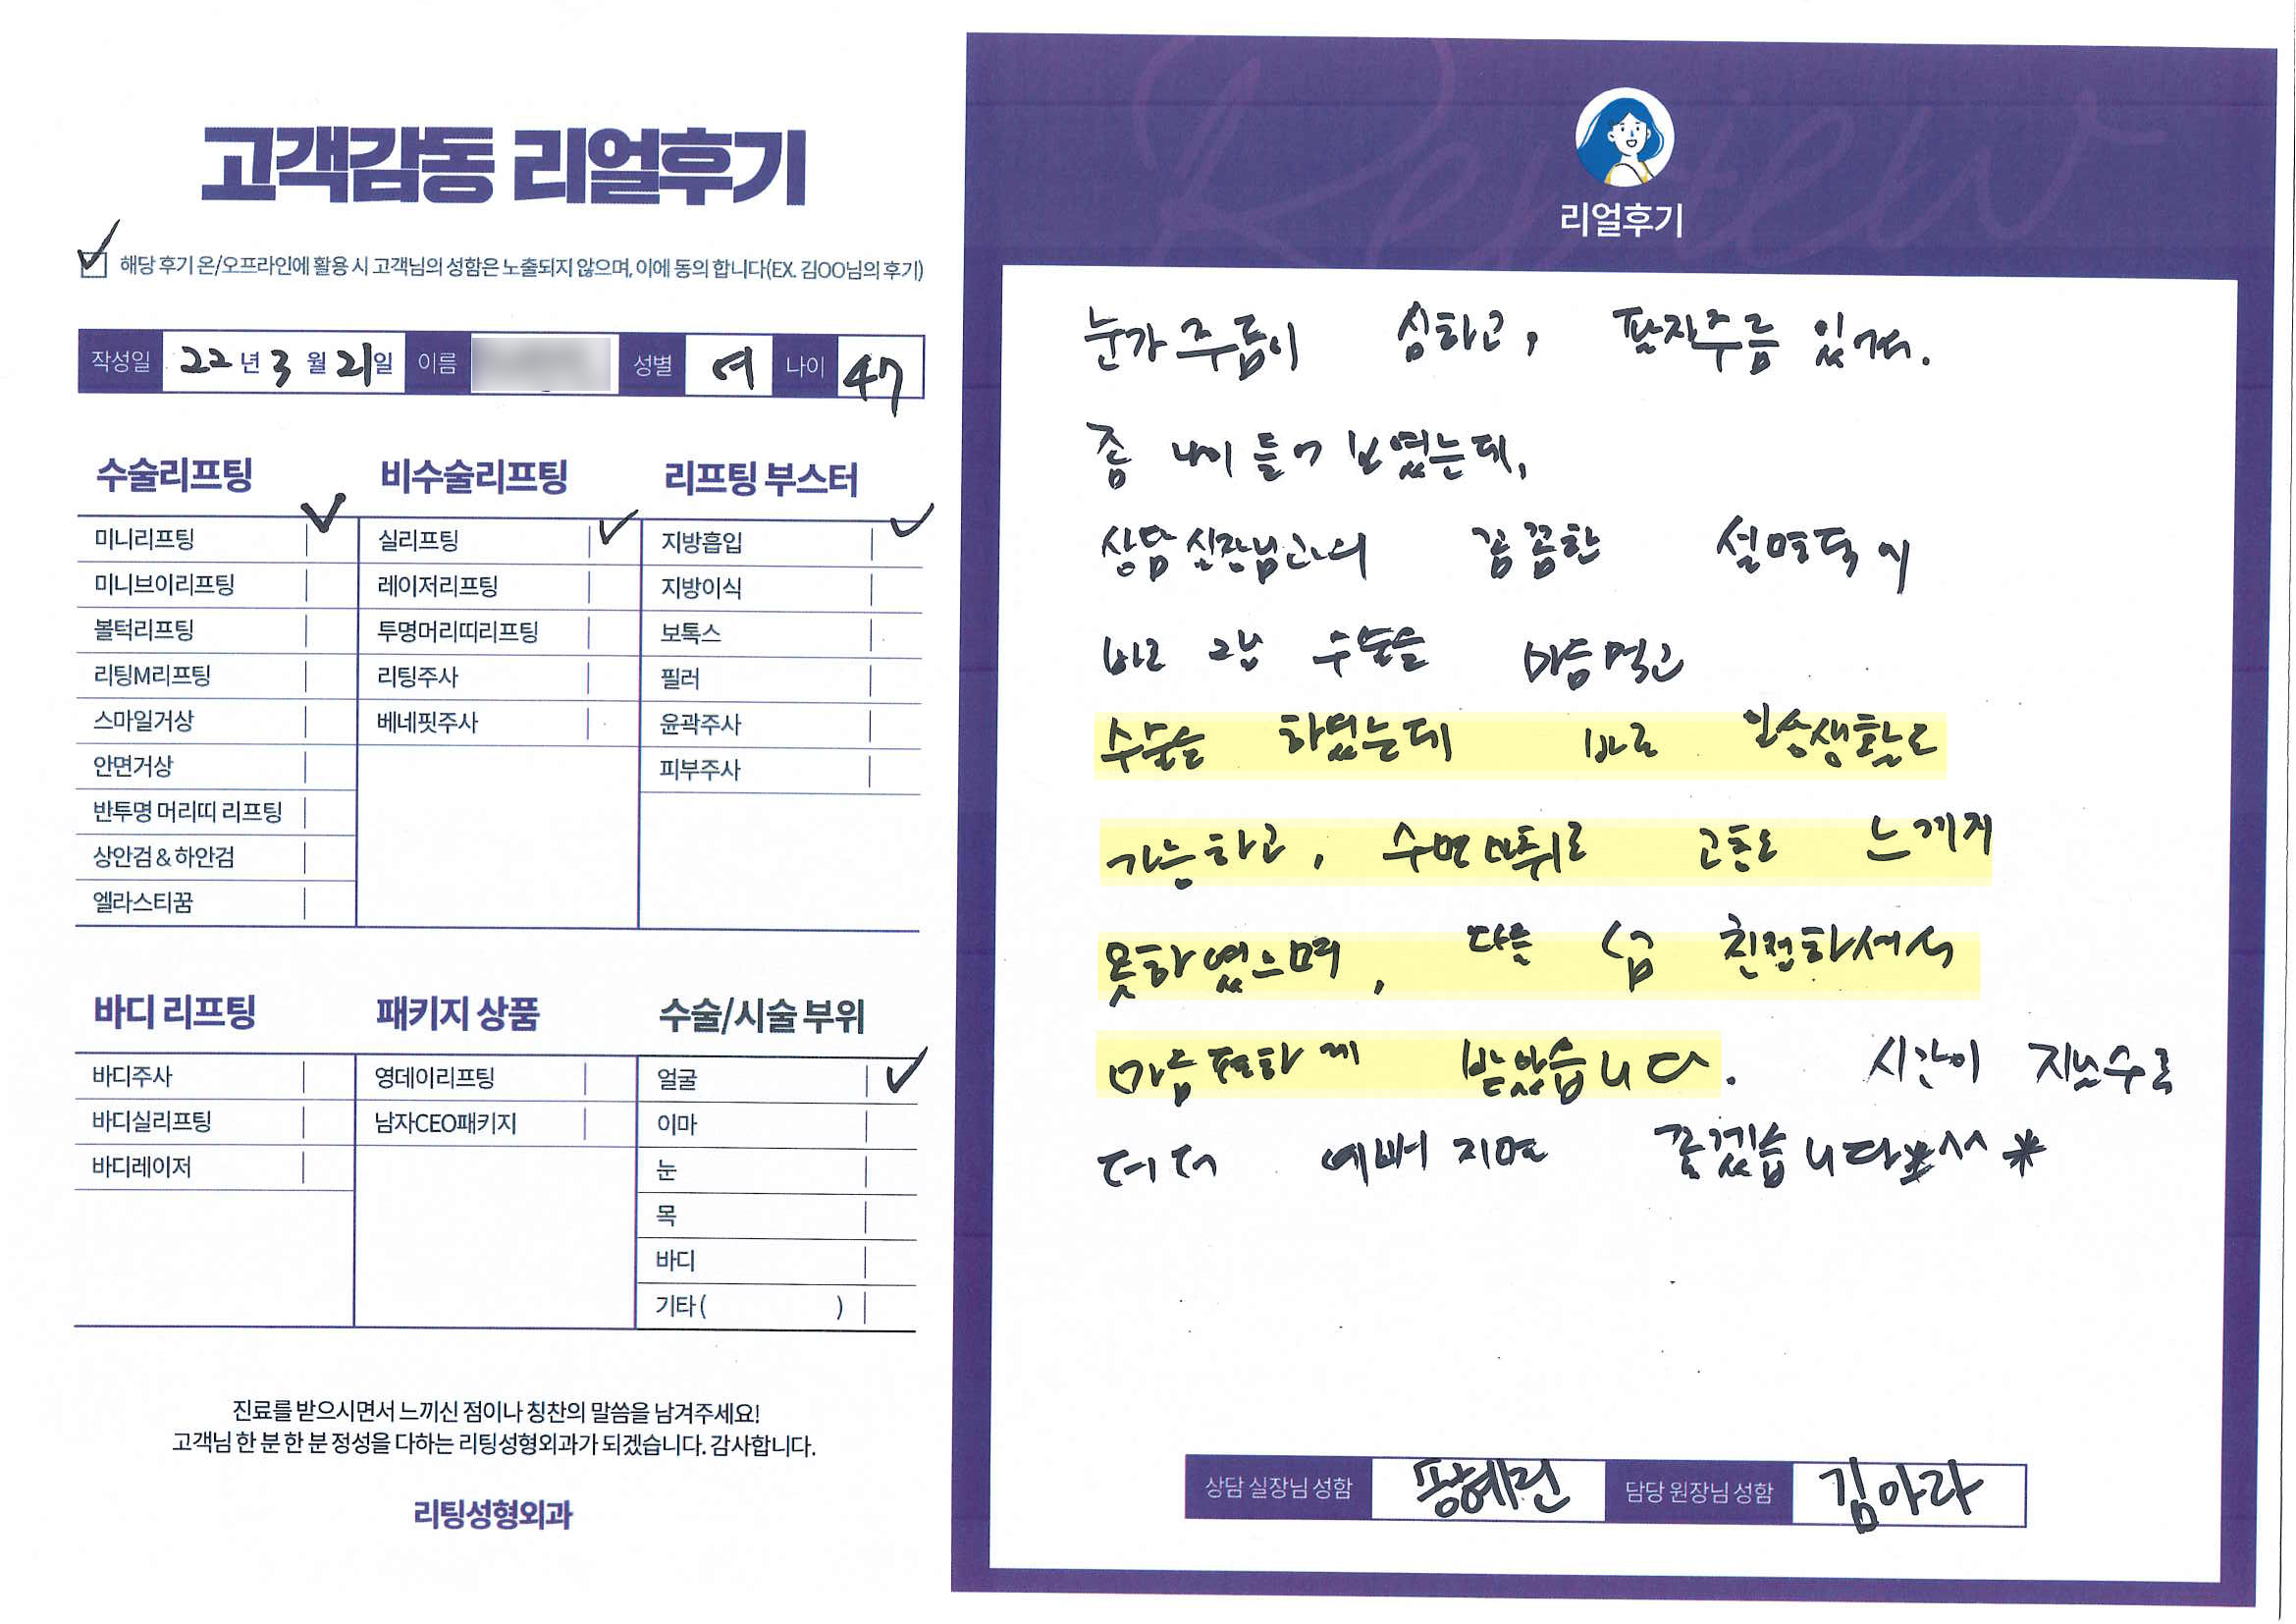 고객감동 리얼후기
해당 후기 온/오프라인에 활용 시 고객님의 성함은 노출되지 않으며, 이에 동의 합니다(EX. 김OO님의 후기)
작성일 22년 3월 21일 이름 성별 여 나이 47
수술리프팅
미니리프팅
미니브이리프팅
볼턱리프팅
리팅M리프팅
스마일거상
안면거상
반투명 머리띠 리프팅
상안검 & 하안검
엘라스티꿈
비수술리프팅
실리프팅
레이저리프팅
투명머리띠리프팅
리팅주사
베네핏주사
리프팅 부스터
지방흡입
지방이식
보톡스
필러
윤곽주사
피부주사
바디 리프팅
바디주사
바디실리프팅
바디레이저
패키지 상품
영데이리프팅
남자CEO패키지
수술/시술 부위
얼굴
이마
눈
목
바디
기타 ( )
진료를 받으시면서 느끼신 점이나 칭찬의 말씀을 남겨주세요!
고객님 한 분 한 분 정성을 다하는 리팅성형외과가 되겠습니다. 감사합니다.
리팅성형외과
Review
리얼후기
눈가 주름이 심하고, 팔자주름 있어.
좀 나이 들어 보였는데,
상담 실장님과의 꼼꼼한 설명듣이
바로 그날 수술을 마음먹고
수술을 하였는데 바로 일상생활도
가능하고, 수면마취로 고통도 느끼지
못하였으며, 다들 친절하셔서
마음 편하게 받았습니다. 시간이 지날수록
더더 예뻐지면 좋겠습니다*^^*
상담 실장님 성함 예린 담당 원장님 성함 김아라